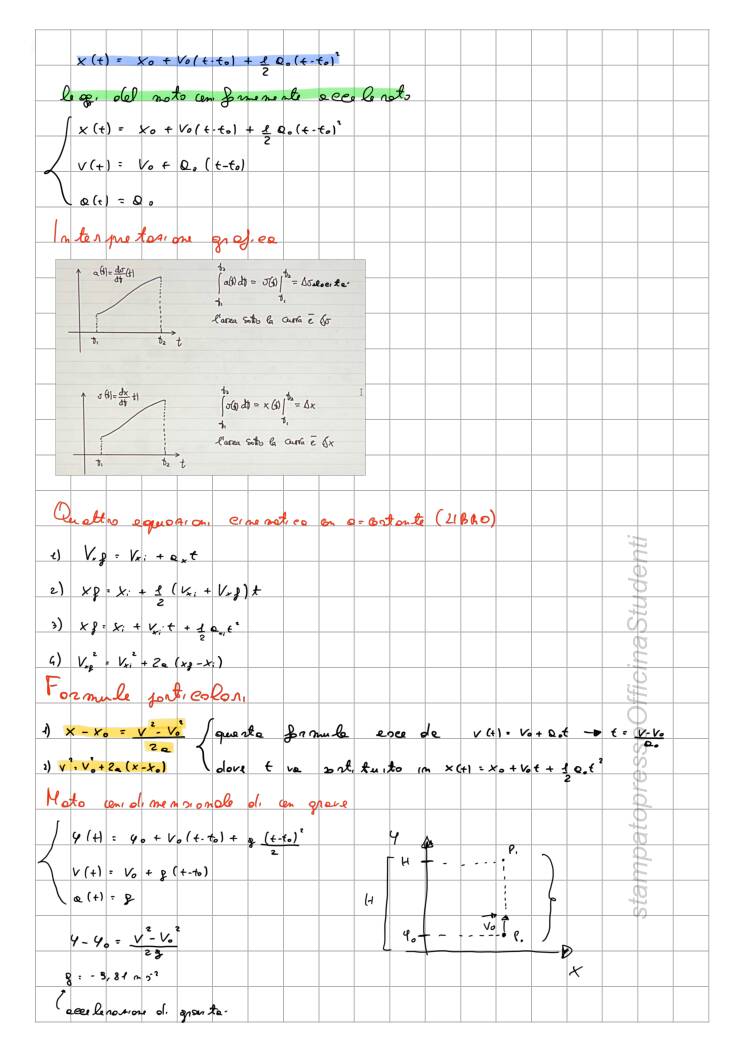 x(t) = x₀ + v₀(t-t₀) + 1/2 a₀(t-t₀)²
leggi del moto uniformemente accelerato
x(t) = x₀ + v₀(t-t₀) + 1/2 a₀(t-t₀)²
v(t) = v₀ + a₀(t-t₀)
a(t) = a₀
Interpretazione grafica
a(t) = dv/dt (t)
t₁ t₂ t
∫ a(t) dt = v(t) | = Δvelocita
t₁ t₂
l'area sotto la curva è Δv
v(t) = dx/dt (t)
t₁ t₂ t
∫ v(t) dt = x(t) | = Δx
t₁ t₂
l'area sotto la curva è Δx
Quattro equazioni cinematica con a=costante (LIBRO)
1) Vxf = Vxi + axt
2) xf = xi + 1/2 (Vxi + Vxf)t
3) xf = xi + Vxi t + 1/2 axi t²
4) Vxf² = Vxi² + 2a(xf-xi)
Formule particolari
1) x-x₀ = (v²-v₀²)/2a { questa formula esce da v(t) = v₀ + a₀t → t = (v-v₀)/a₀
2) v² = v₀² + 2a(x-x₀) dove t va sostituito in x(t) = x₀ + v₀t + 1/2 a₀t²
Moto unidimensionale di un grave
y(t) = y₀ + v₀(t-t₀) + g (t-t₀)²/2
v(t) = v₀ + g(t-t₀)
a(t) = g
y-y₀ = (v²-v₀²)/2g
g = -9,81 m s⁻²
accelerazione di gravita.
y
H
P₁
H
v₀
y₀
P₀
x
stampatopressoOfficinaStudenti